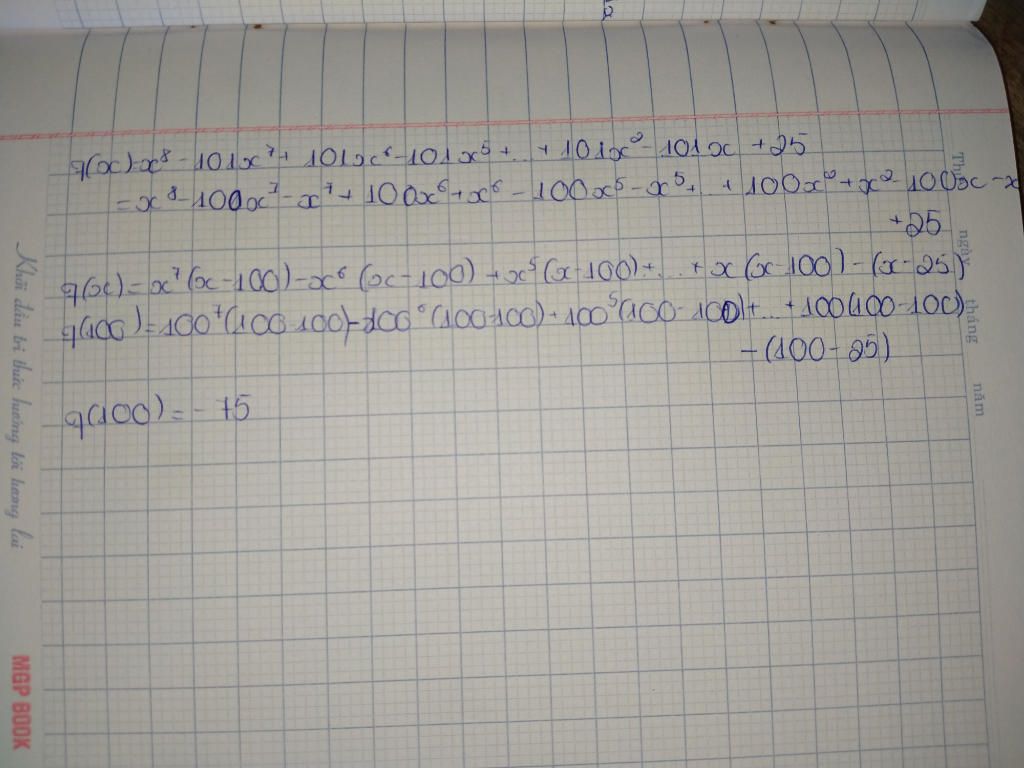 q(x)=x⁸-101x⁷+101x⁶-101x⁵+...+101x²-101x+25
=x⁸-100x⁷-x⁷+100x⁶+x⁶-100x⁵-x⁵+...+100x²+x²-100x-x
+25
q(x)=x⁷(x-100)-x⁶(x-100)+x⁵(x-100)+...+x(x-100)-(x-25)
q(100)=100⁷(100-100)-100⁶(100-100)+100⁵(100-100)+...+100(100-100)
-(100-25)
q(100)=-75
ngày
tháng
năm
Khởi đầu tri thức hướng tới tương lai
MGP BOOK